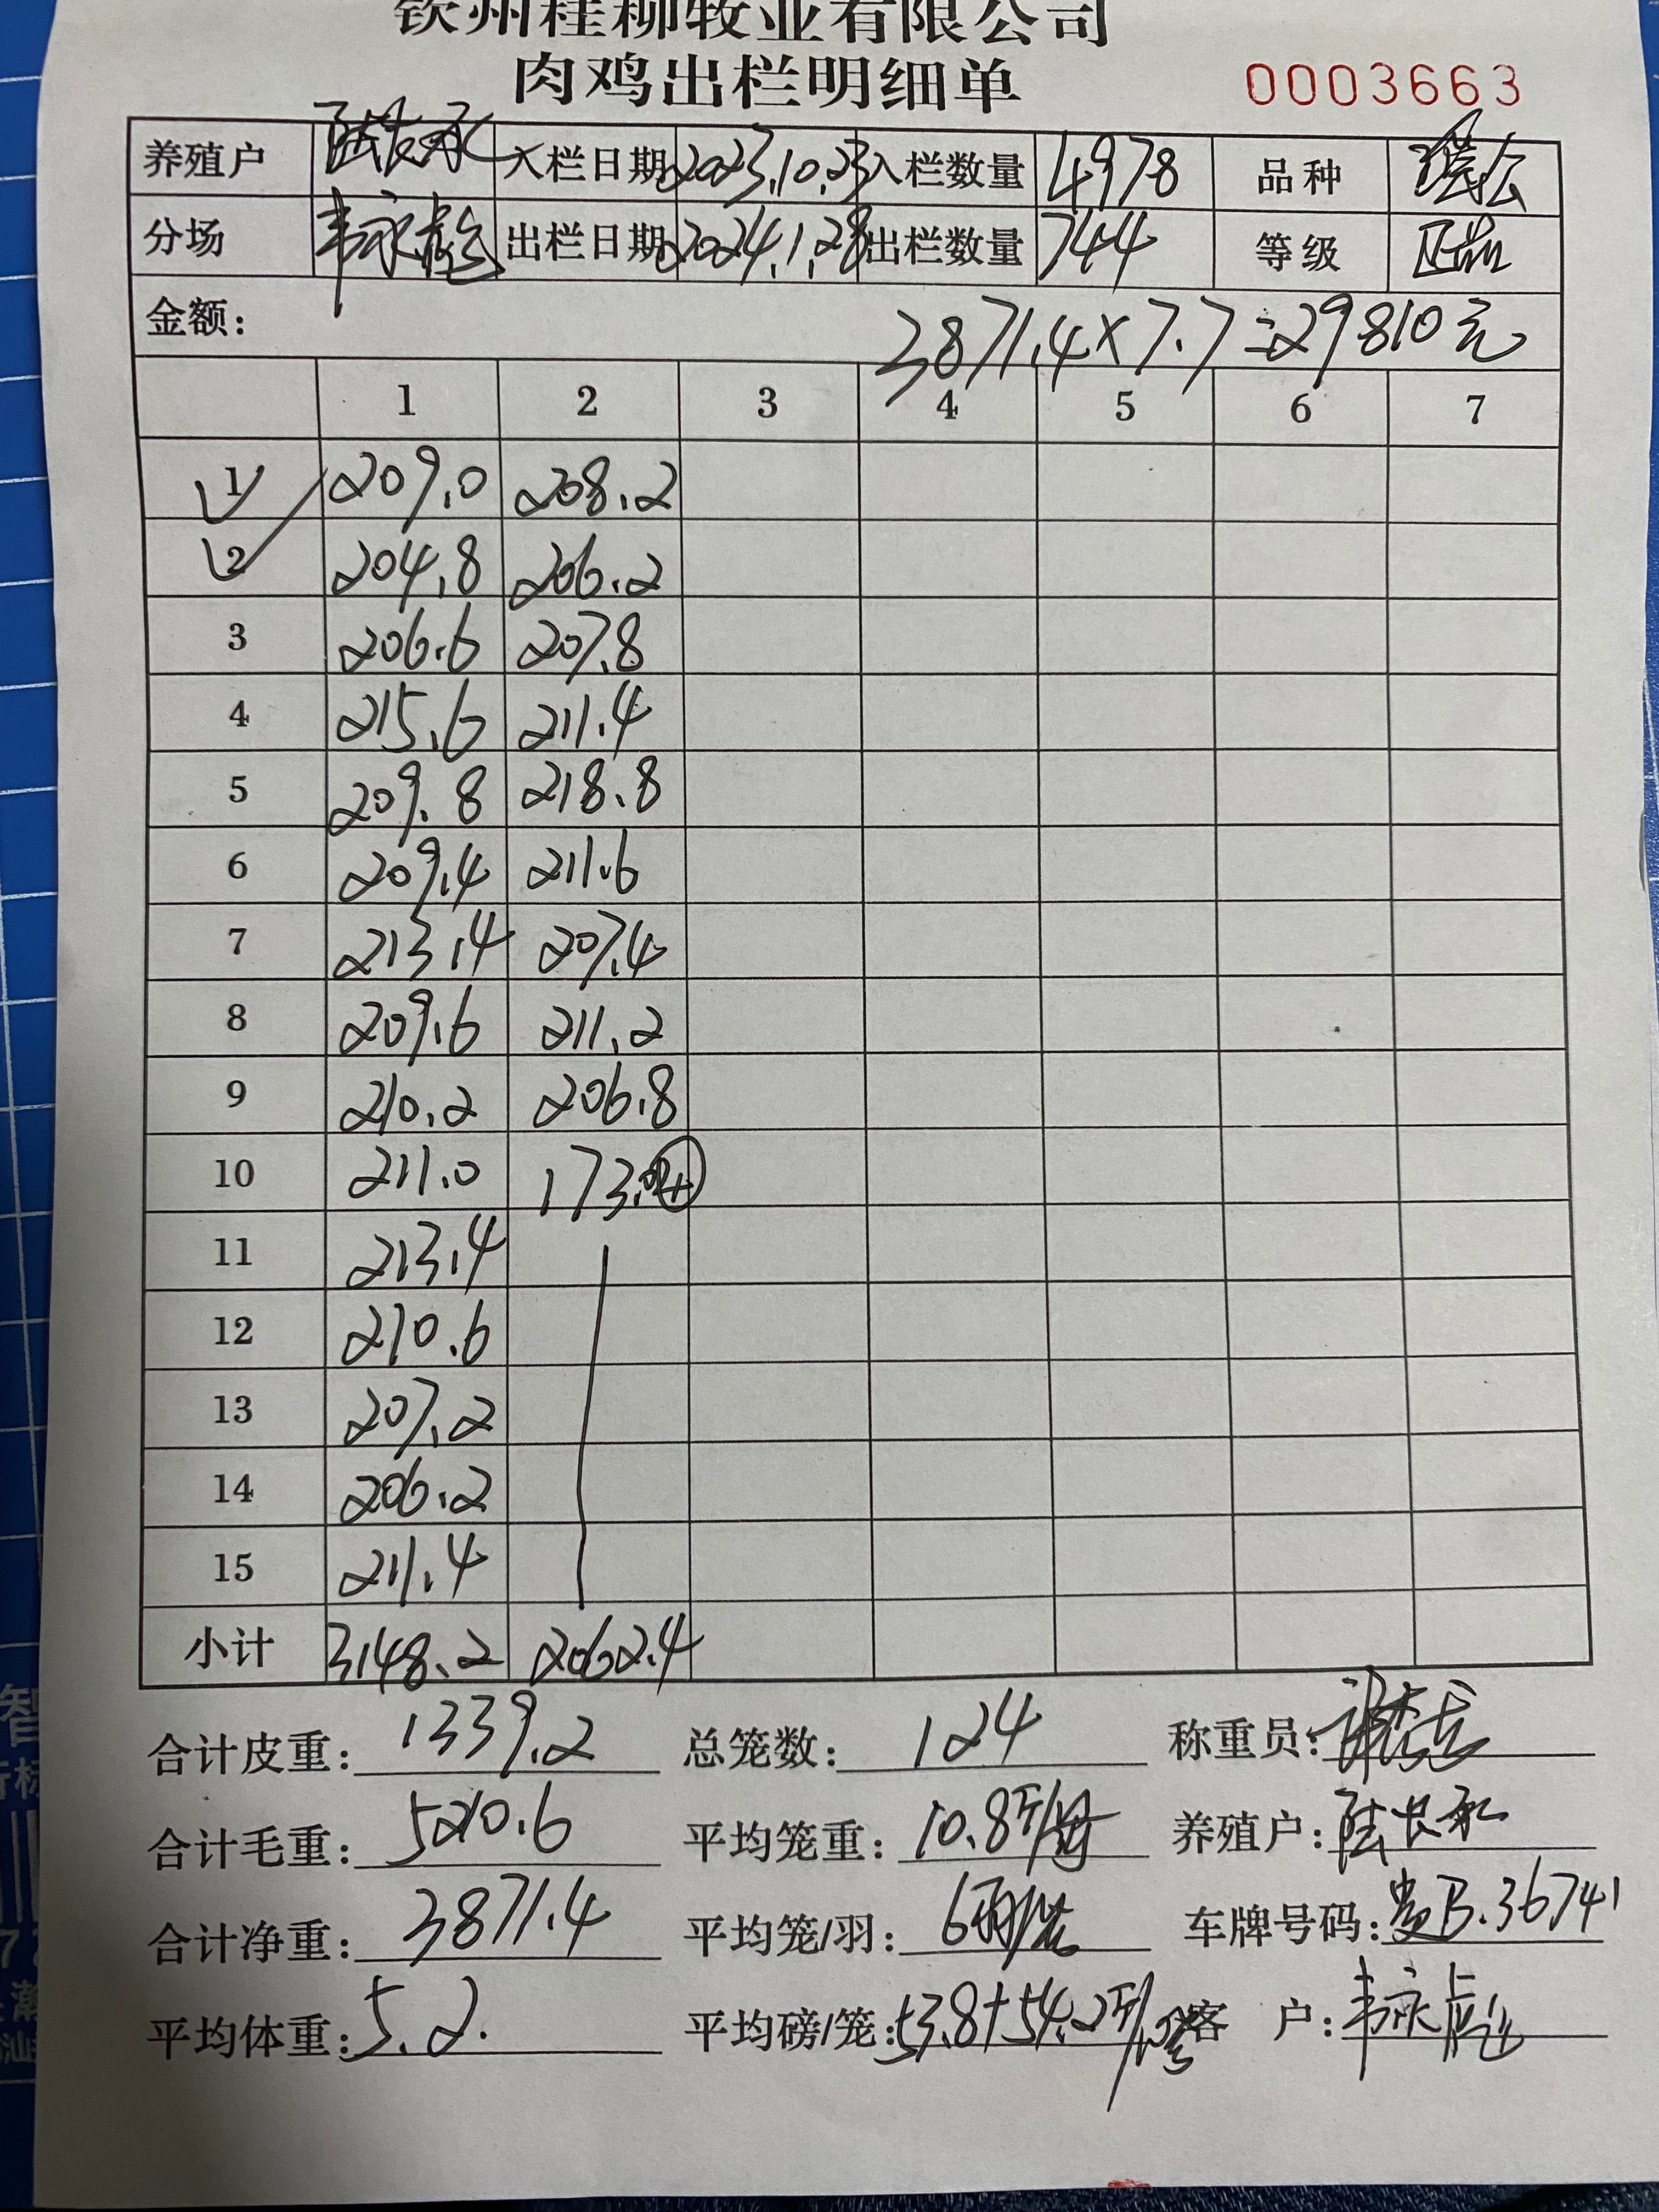 钦州桂柳牧业有限公司
肉鸡出栏明细单 0003663
养殖户 入栏日期 2023.10.23 入栏数量 4978 品种
分场 出栏日期 2024.1.28 出栏数量 744 等级 正品
金额: 3871.4×7.7=29810元
1 2 3 4 5 6 7
1 209.0 208.2
2 204.8 206.2
3 206.6 207.8
4 215.6 211.4
5 209.8 218.8
6 209.4 211.6
7 213.4 207.4
8 209.6 211.2
9 210.2 206.8
10 211.0 173.0
11 213.4
12 210.6
13 207.2
14 206.2
15 211.4
小计 3148.2 2062.4
合计皮重: 1339.2 总笼数: 124 称重员:
合计毛重: 5210.6 平均笼重: 10.8斤/ 养殖户:
合计净重: 3871.4 平均笼/羽: 6羽/笼 车牌号码: B.36741
平均体重: 5.2. 平均磅/笼: 53.8+54.2斤/ 客 户:
智